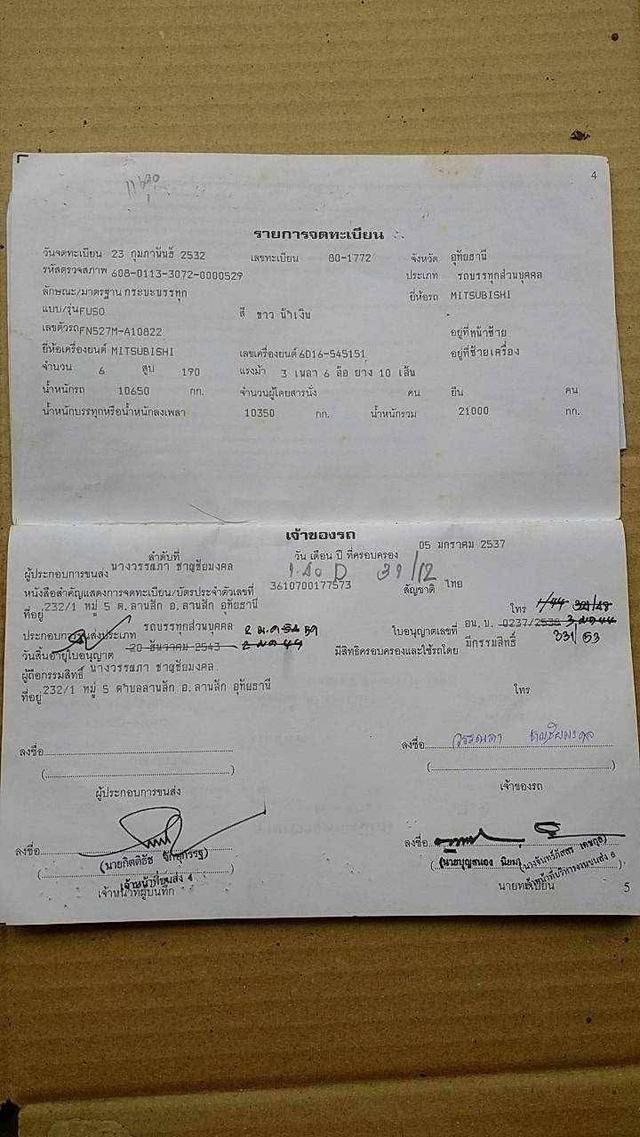 4
รายการจดทะเบียน
วันจดทะเบียน 23 กุมภาพันธ์ 2532 เลขทะเบียน 80-1772 จังหวัด อุทัยธานี
รหัสตรวจสภาพ 608-0113-3072-0000529 ประเภท รถบรรทุกส่วนบุคคล
ลักษณะ/มาตรฐาน กระบะบรรทุก ยี่ห้อรถ MITSUBISHI
แบบ/รุ่น FUSO สี ขาว น้ำเงิน
เลขตัวรถ FN527M-A10822 อยู่ที่หน้าซ้าย
ยี่ห้อเครื่องยนต์ MITSUBISHI เลขเครื่องยนต์ 6D16-545151 อยู่ที่ซ้ายเครื่อง
จำนวน 6 สูบ 190 แรงม้า 3 เพลา 6 ล้อ ยาง 10 เส้น
น้ำหนักรถ 10650 กก. จำนวนผู้โดยสารนั่ง คน ยืน คน
น้ำหนักบรรทุกหรือน้ำหนักลงเพลา 10350 กก. น้ำหนักรวม 21000 กก.
เจ้าของรถ
ลำดับที่ วัน เดือน ปี ที่ครอบครอง 05 มกราคม 2537
ผู้ประกอบการขนส่ง นางวรรณภา ชาญชัยมงคล 31/12
หนังสือสำคัญแสดงการจดทะเบียน/บัตรประจำตัวเลขที่ 3610700177573 สัญชาติ ไทย
ที่อยู่ 232/1 หมู่ 5 ต.ลานสัก อ.ลานสัก อุทัยธานี โทร
ประกอบการขนส่งประเภท รถบรรทุกส่วนบุคคล ใบอนุญาตเลขที่ อน.บ. 0237/2538
วันสิ้นอายุใบอนุญาต 20 ธันวาคม 2543 มีสิทธิครอบครองและใช้รถโดย มีกรรมสิทธิ์ 331/53
ผู้ถือกรรมสิทธิ์ นางวรรณภา ชาญชัยมงคล
ที่อยู่ 232/1 หมู่ 5 ตำบลลานสัก อ.ลานสัก อุทัยธานี โทร
ลงชื่อ ลงชื่อ วรรณภา ชาญชัยมงคล
ผู้ประกอบการขนส่ง เจ้าของรถ
ลงชื่อ ลงชื่อ
(นายบุญสนอง นิยม)
เจ้าหน้าที่ขนส่ง 4
เจ้าหน้าที่ผู้บันทึก นายทะเบียน
5